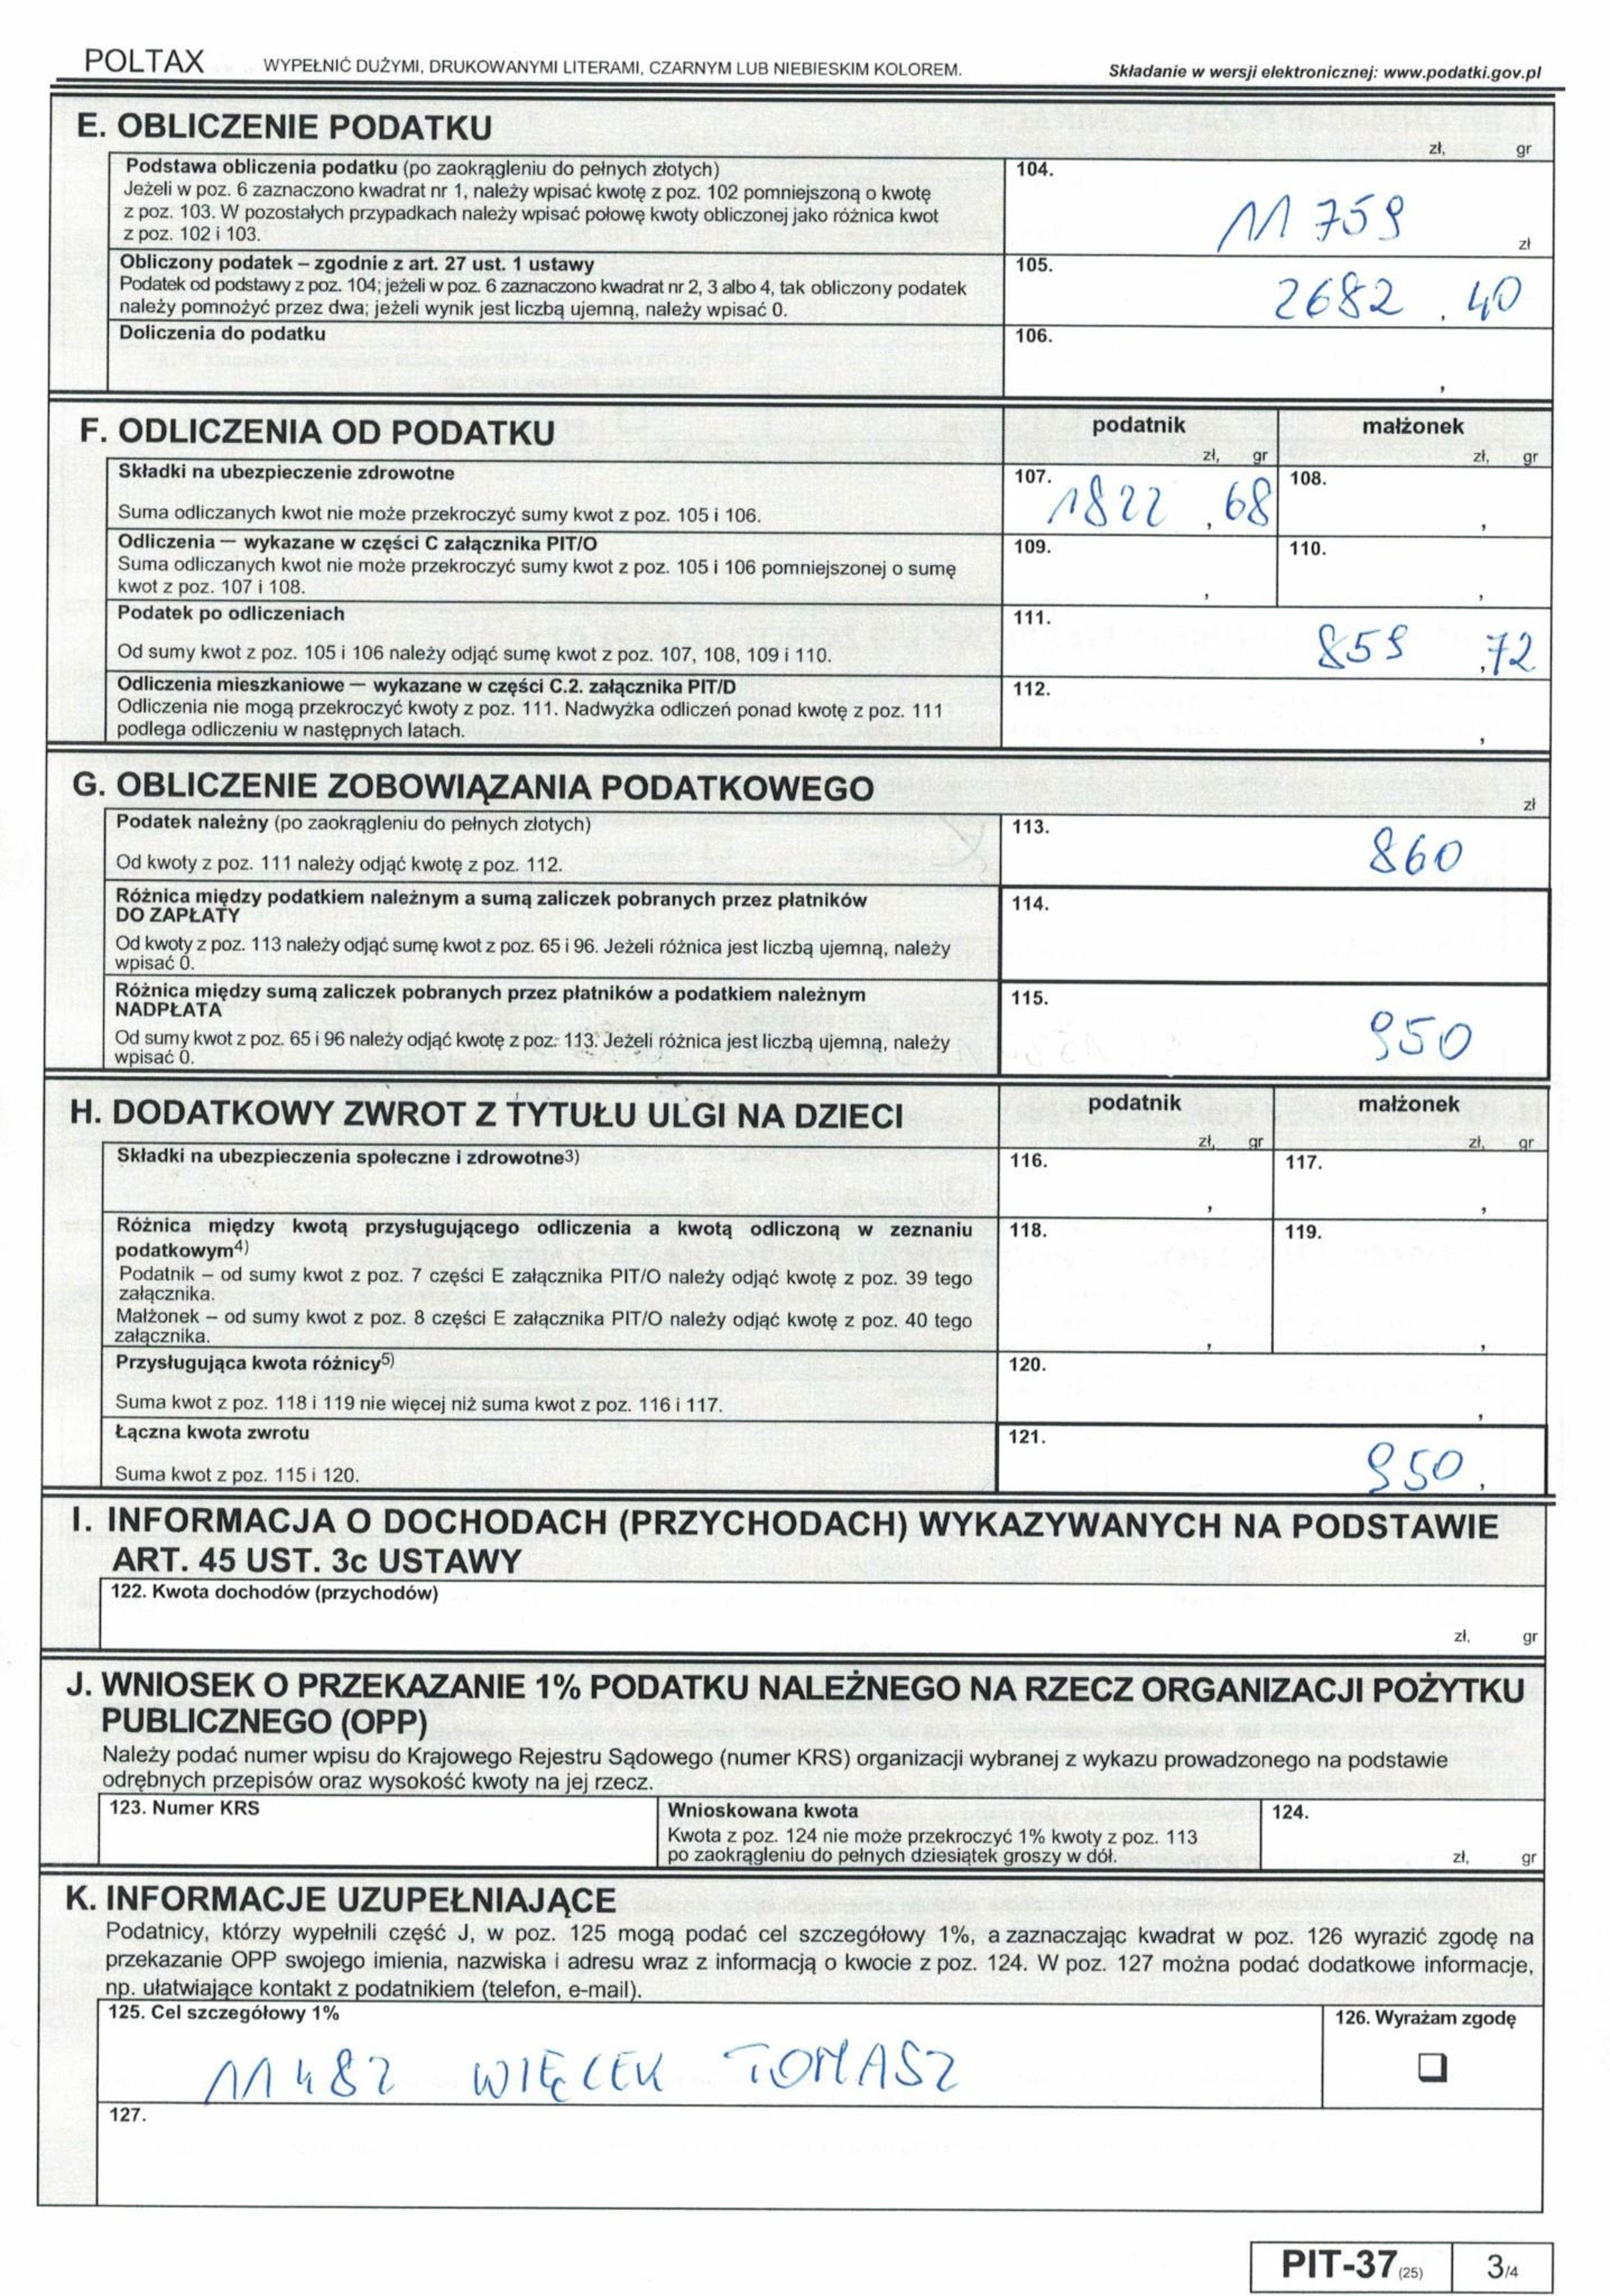 POLTAX WYPEŁNIĆ DUŻYMI, DRUKOWANYMI LITERAMI, CZARNYM LUB NIEBIESKIM KOLOREM. Składanie w wersji elektronicznej: www.podatki.gov.pl
E. OBLICZENIE PODATKU
zł, gr
Podstawa obliczenia podatku (po zaokrągleniu do pełnych złotych)
Jeżeli w poz. 6 zaznaczono kwadrat nr 1, należy wpisać kwotę z poz. 102 pomniejszoną o kwotę
z poz. 103. W pozostałych przypadkach należy wpisać połowę kwoty obliczonej jako różnica kwot
z poz. 102 i 103.
104.
11 759
zł
Obliczony podatek – zgodnie z art. 27 ust. 1 ustawy
Podatek od podstawy z poz. 104; jeżeli w poz. 6 zaznaczono kwadrat nr 2, 3 albo 4, tak obliczony podatek
należy pomnożyć przez dwa; jeżeli wynik jest liczbą ujemną, należy wpisać 0.
105.
2682 , 40
Doliczenia do podatku
106.
,
F. ODLICZENIA OD PODATKU
podatnik małżonek
zł, gr zł, gr
Składki na ubezpieczenie zdrowotne
Suma odliczanych kwot nie może przekroczyć sumy kwot z poz. 105 i 106.
107.
1822 , 68
108.
,
Odliczenia — wykazane w części C załącznika PIT/O
Suma odliczanych kwot nie może przekroczyć sumy kwot z poz. 105 i 106 pomniejszonej o sumę
kwot z poz. 107 i 108.
109.
,
110.
,
Podatek po odliczeniach
Od sumy kwot z poz. 105 i 106 należy odjąć sumę kwot z poz. 107, 108, 109 i 110.
111.
859 ,72
Odliczenia mieszkaniowe — wykazane w części C.2. załącznika PIT/D
Odliczenia nie mogą przekroczyć kwoty z poz. 111. Nadwyżka odliczeń ponad kwotę z poz. 111
podlega odliczeniu w następnych latach.
112.
,
G. OBLICZENIE ZOBOWIĄZANIA PODATKOWEGO
zł
Podatek należny (po zaokrągleniu do pełnych złotych)
Od kwoty z poz. 111 należy odjąć kwotę z poz. 112.
113.
860
Różnica między podatkiem należnym a sumą zaliczek pobranych przez płatników
DO ZAPŁATY
Od kwoty z poz. 113 należy odjąć sumę kwot z poz. 65 i 96. Jeżeli różnica jest liczbą ujemną, należy
wpisać 0.
114.
Różnica między sumą zaliczek pobranych przez płatników a podatkiem należnym
NADPŁATA
Od sumy kwot z poz. 65 i 96 należy odjąć kwotę z poz. 113. Jeżeli różnica jest liczbą ujemną, należy
wpisać 0.
115.
950
H. DODATKOWY ZWROT Z TYTUŁU ULGI NA DZIECI
podatnik małżonek
zł, gr zł, gr
Składki na ubezpieczenia społeczne i zdrowotne3)
116.
,
117.
,
Różnica między kwotą przysługującego odliczenia a kwotą odliczoną w zeznaniu
podatkowym4)
Podatnik – od sumy kwot z poz. 7 części E załącznika PIT/O należy odjąć kwotę z poz. 39 tego
załącznika.
Małżonek – od sumy kwot z poz. 8 części E załącznika PIT/O należy odjąć kwotę z poz. 40 tego
załącznika.
118.
,
119.
,
Przysługująca kwota różnicy5)
Suma kwot z poz. 118 i 119 nie więcej niż suma kwot z poz. 116 i 117.
120.
,
Łączna kwota zwrotu
Suma kwot z poz. 115 i 120.
121.
950 ,
I. INFORMACJA O DOCHODACH (PRZYCHODACH) WYKAZYWANYCH NA PODSTAWIE
ART. 45 UST. 3c USTAWY
122. Kwota dochodów (przychodów)
zł, gr
J. WNIOSEK O PRZEKAZANIE 1% PODATKU NALEŻNEGO NA RZECZ ORGANIZACJI POŻYTKU
PUBLICZNEGO (OPP)
Należy podać numer wpisu do Krajowego Rejestru Sądowego (numer KRS) organizacji wybranej z wykazu prowadzonego na podstawie
odrębnych przepisów oraz wysokość kwoty na jej rzecz.
123. Numer KRS
Wnioskowana kwota
Kwota z poz. 124 nie może przekroczyć 1% kwoty z poz. 113
po zaokrągleniu do pełnych dziesiątek groszy w dół.
124.
zł, gr
K. INFORMACJE UZUPEŁNIAJĄCE
Podatnicy, którzy wypełnili część J, w poz. 125 mogą podać cel szczegółowy 1%, a zaznaczając kwadrat w poz. 126 wyrazić zgodę na
przekazanie OPP swojego imienia, nazwiska i adresu wraz z informacją o kwocie z poz. 124. W poz. 127 można podać dodatkowe informacje,
np. ułatwiające kontakt z podatnikiem (telefon, e-mail).
125. Cel szczegółowy 1%
11482 WIĘCEK TOMASZ
126. Wyrażam zgodę
127.
PIT-37 (25) 3/4